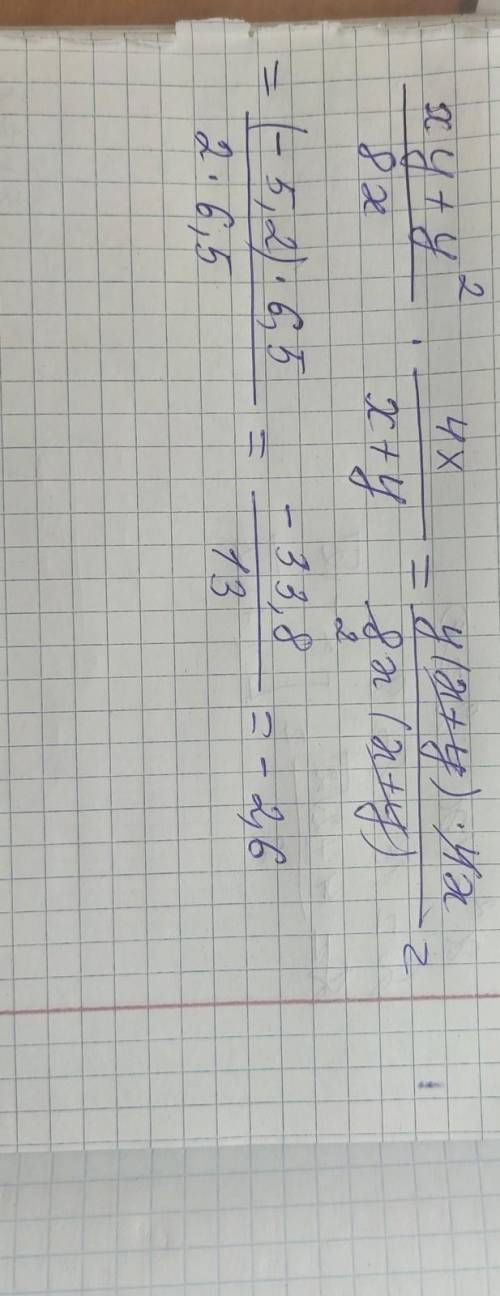 xy + y² / 8x · 4x / x + y = y(x + y) · 4x / 8x (x + y) =
2
= (- 5,2) · 6,5 / 2 · 6,5 = - 33,8 / 13 = - 2,6